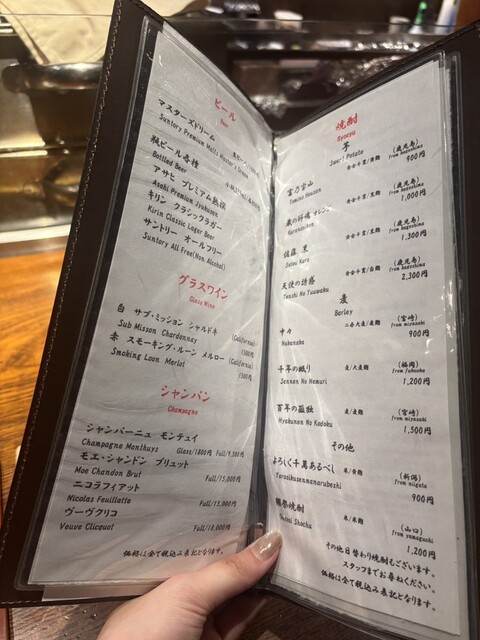 ビール
Beer
マスターズドリーム
Suntory Premium Malts Master's Dream
瓶ビール各種
Bottled Beer
アサヒ プレミアム熟撰
Asahi Premium Jyukusen
キリン クラシックラガー
Kirin Classic Lager Beer
サントリー オールフリー
Suntory All Free(Non Alcohol)
グラスワイン
Glass Wine
白 サブ・ミッション シャルドネ (California)
Sub Misson Chardonnay
赤 スモーキング・ルーン メルロー (California)
Smoking Loon Merlot 1300円
シャンパン
Champagne
シャンパーニュ モンテュイ
Champagne Monthuys Glass/1800円 Full/9,500円
モエ・シャンドン ブリュット
Moe Chandon Brut Full/15,000円
ニコラフィアット
Nicolas Feuillatte Full/15,000円
ヴーヴクリコ
Veuve Clicquot Full/18,000円
価格は全て税込み表記となります。
焼酎
Syocyu
芋
Sweet Potato
富乃宝山 黄金千貫/黄麹 (鹿児島)
Tomino Houzan from kagoshima
900円
蔵の師魂 オレンジ (鹿児島)
from kagoshima
1,000円
佐藤 黒 (鹿児島)
Satou Kuro from kagoshima
1,300円
天使の誘惑 (鹿児島)
Tenshi No Yuuwaku from kagoshima
2,300円
麦
Barley
中々 二条大麦/麦麹 (宮崎)
Nakanaka from miyazaki
900円
千年の眠り 麦/大麦麹 (福岡)
Sennen No Nemuri from fukuoka
1,200円
百年の孤独 麦/麦麹 (宮崎)
Hyakunen No Kodoku from miyazaki
1,500円
その他
よろしく千萬あるべし 米/黄麹 (新潟)
Yorosikusenmanarubeshi from niigata
900円
獺祭焼酎 米/米麹 (山口)
Shochu from yamaguchi
1,200円
その他日替わり焼酎もございます。
スタッフまでお尋ねください。
価格は全て税込み表記となります。